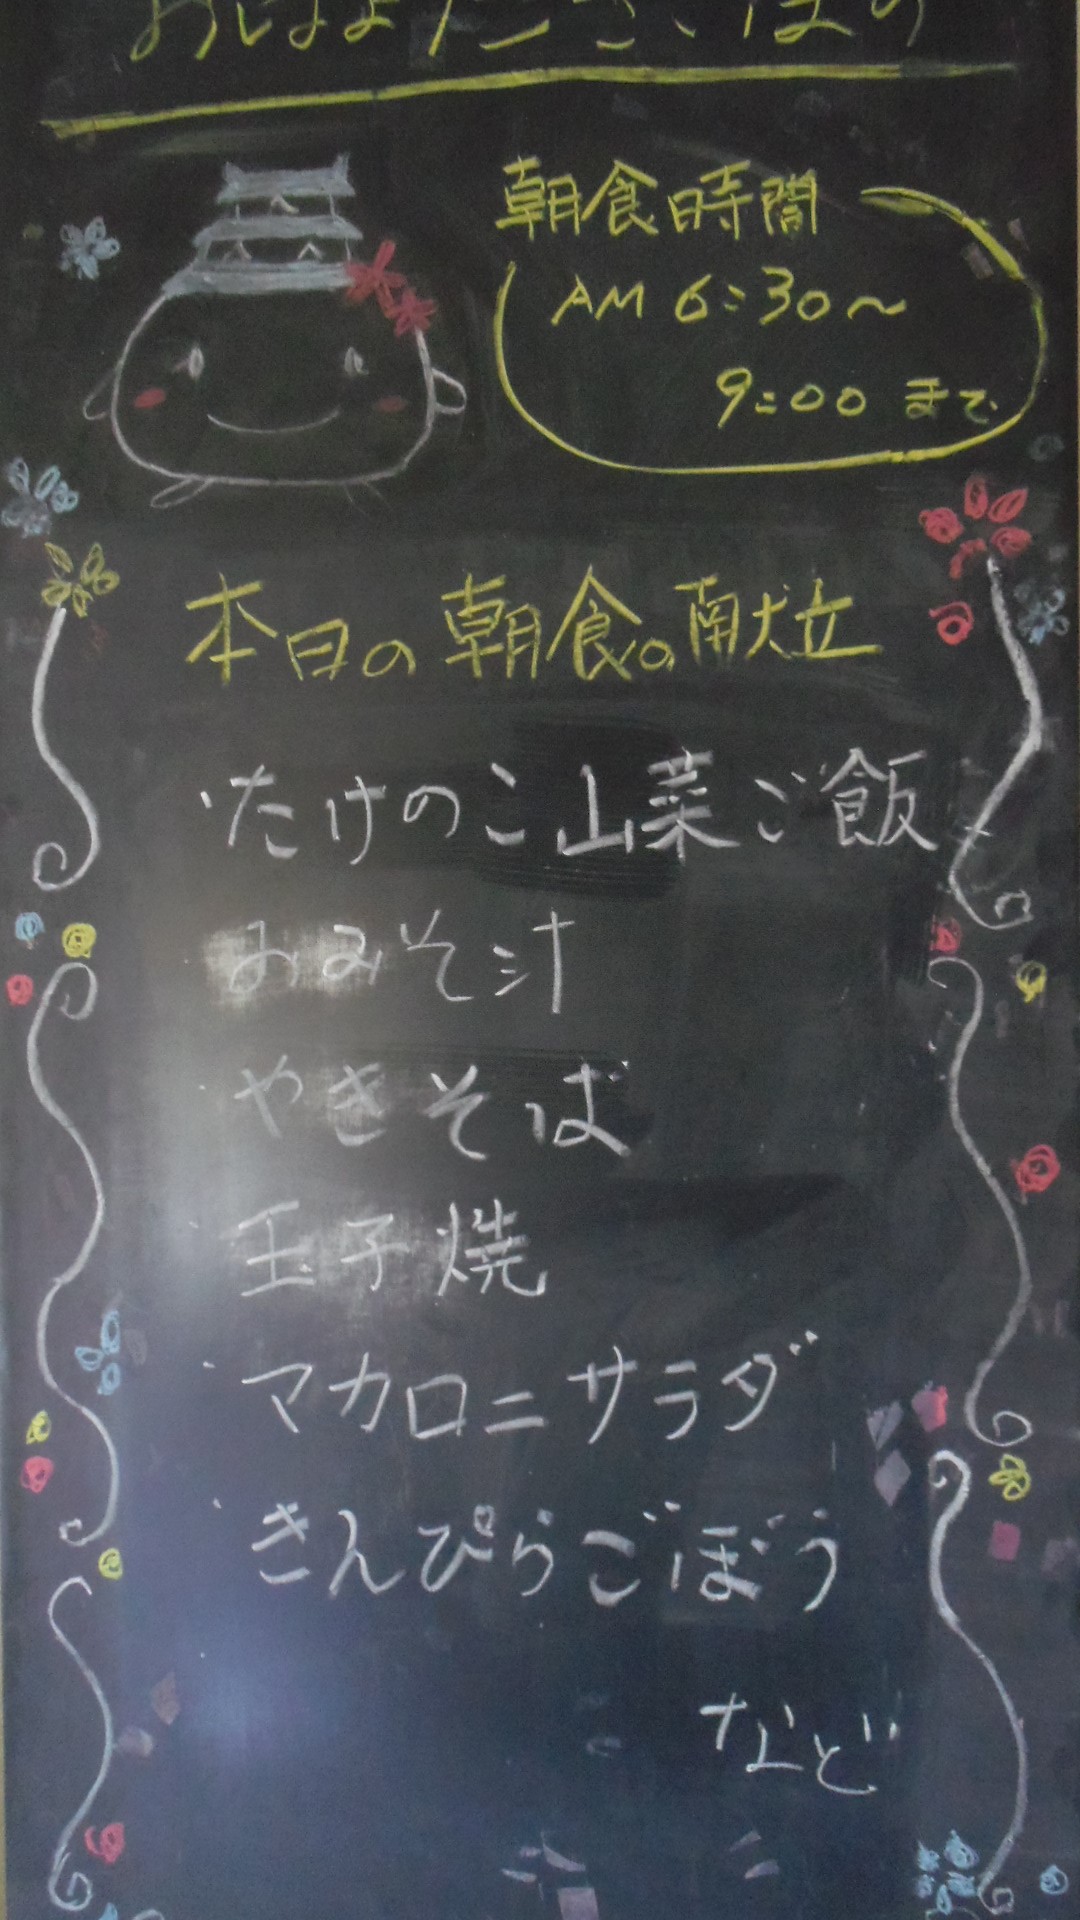 朝食時間
AM 6:30〜
9:00 まで
本日の朝食の献立
・たけのこ山菜ご飯
おみそ汁
・やきそば
・玉子焼
・マカロニサラダ
・きんぴらごぼう
など